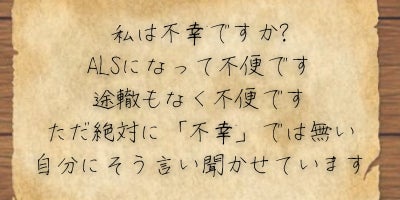 私は不幸ですか?
ALSになって不便です
途轍もなく不便です
ただ絶対に「不幸」では無い
自分にそう言い聞かせています